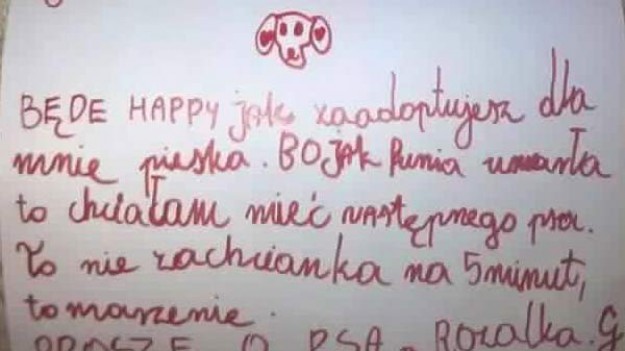 BĘDE HAPPY jak zaadoptujesz dla
mnie pieska. BO jak Punia umarła
to chciałam mieć następnego psa.
To nie zachcianka na 5 minut,
to marzenie.
PROSZE O PSA. Rozalka. G